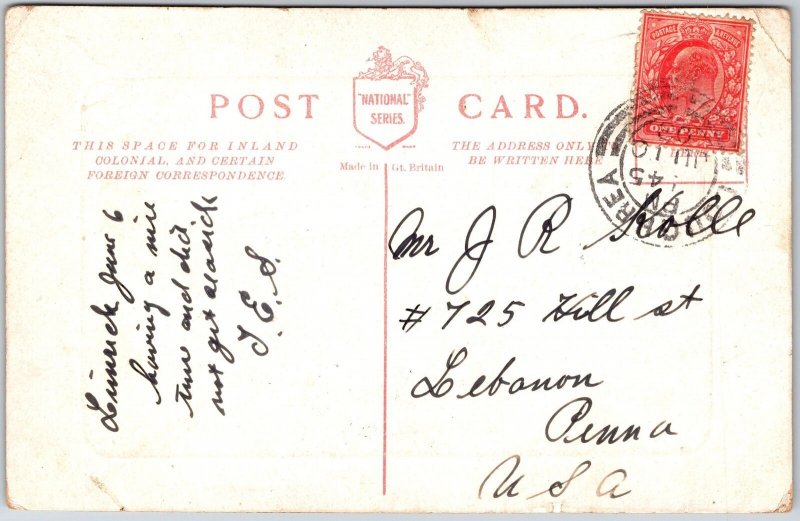 POST CARD.
"NATIONAL" SERIES.
THIS SPACE FOR INLAND
COLONIAL, AND CERTAIN
FOREIGN CORRESPONDENCE.
Made in Gt. Britain
THE ADDRESS ONLY TO
BE WRITTEN HERE
POSTAGE REVENUE
ONE PENNY
45 PM
Limrick June 6
having a nice
time and did
not get seasick
J. E. S.
Mr J R Kolle
#725 Hill st
Lebanon
Penna
USA